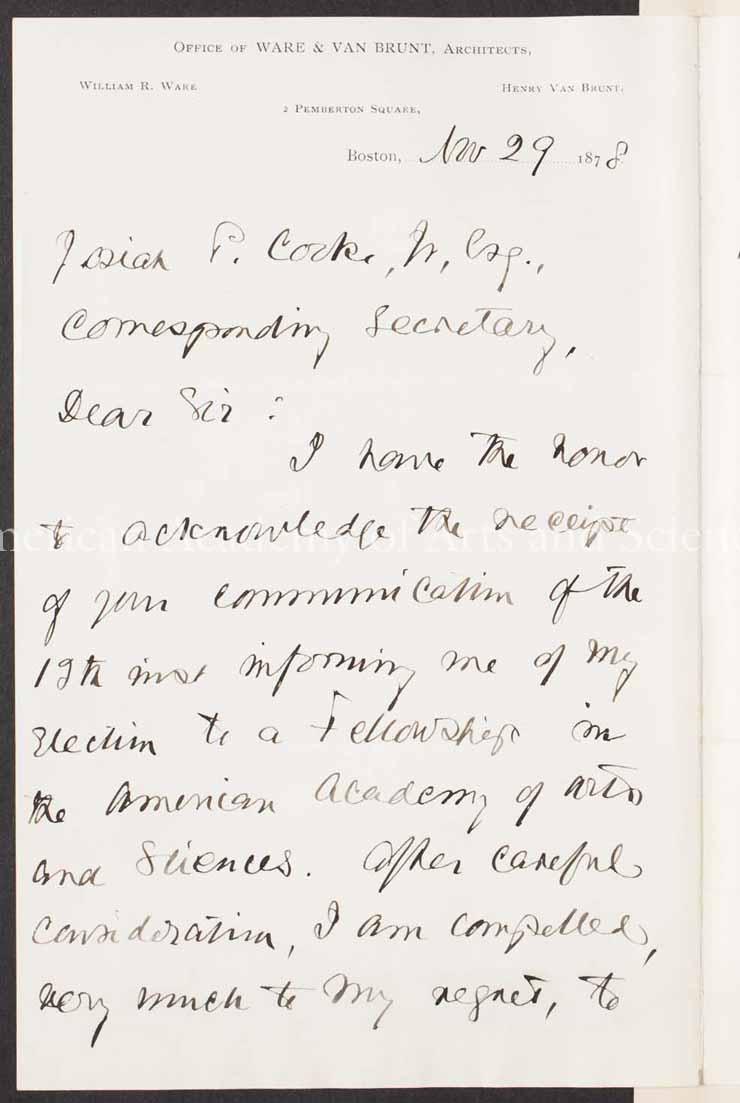 Office of WARE & VAN BRUNT, Architects,
William R. Ware
Henry Van Brunt.
2 Pemberton Square,
Boston, Nov 29 1878
Josiah P. Cooke, Jr, Esq.,
Corresponding Secretary,
Dear Sir :
I have the honor
to acknowledge the receipt
American Academy of Arts and Science
of your communication of the
19th inst informing me of my
Election to a Fellowship in
the American Academy of Arts
and Sciences. After careful
consideration, I am compelled,
very much to my regret, to